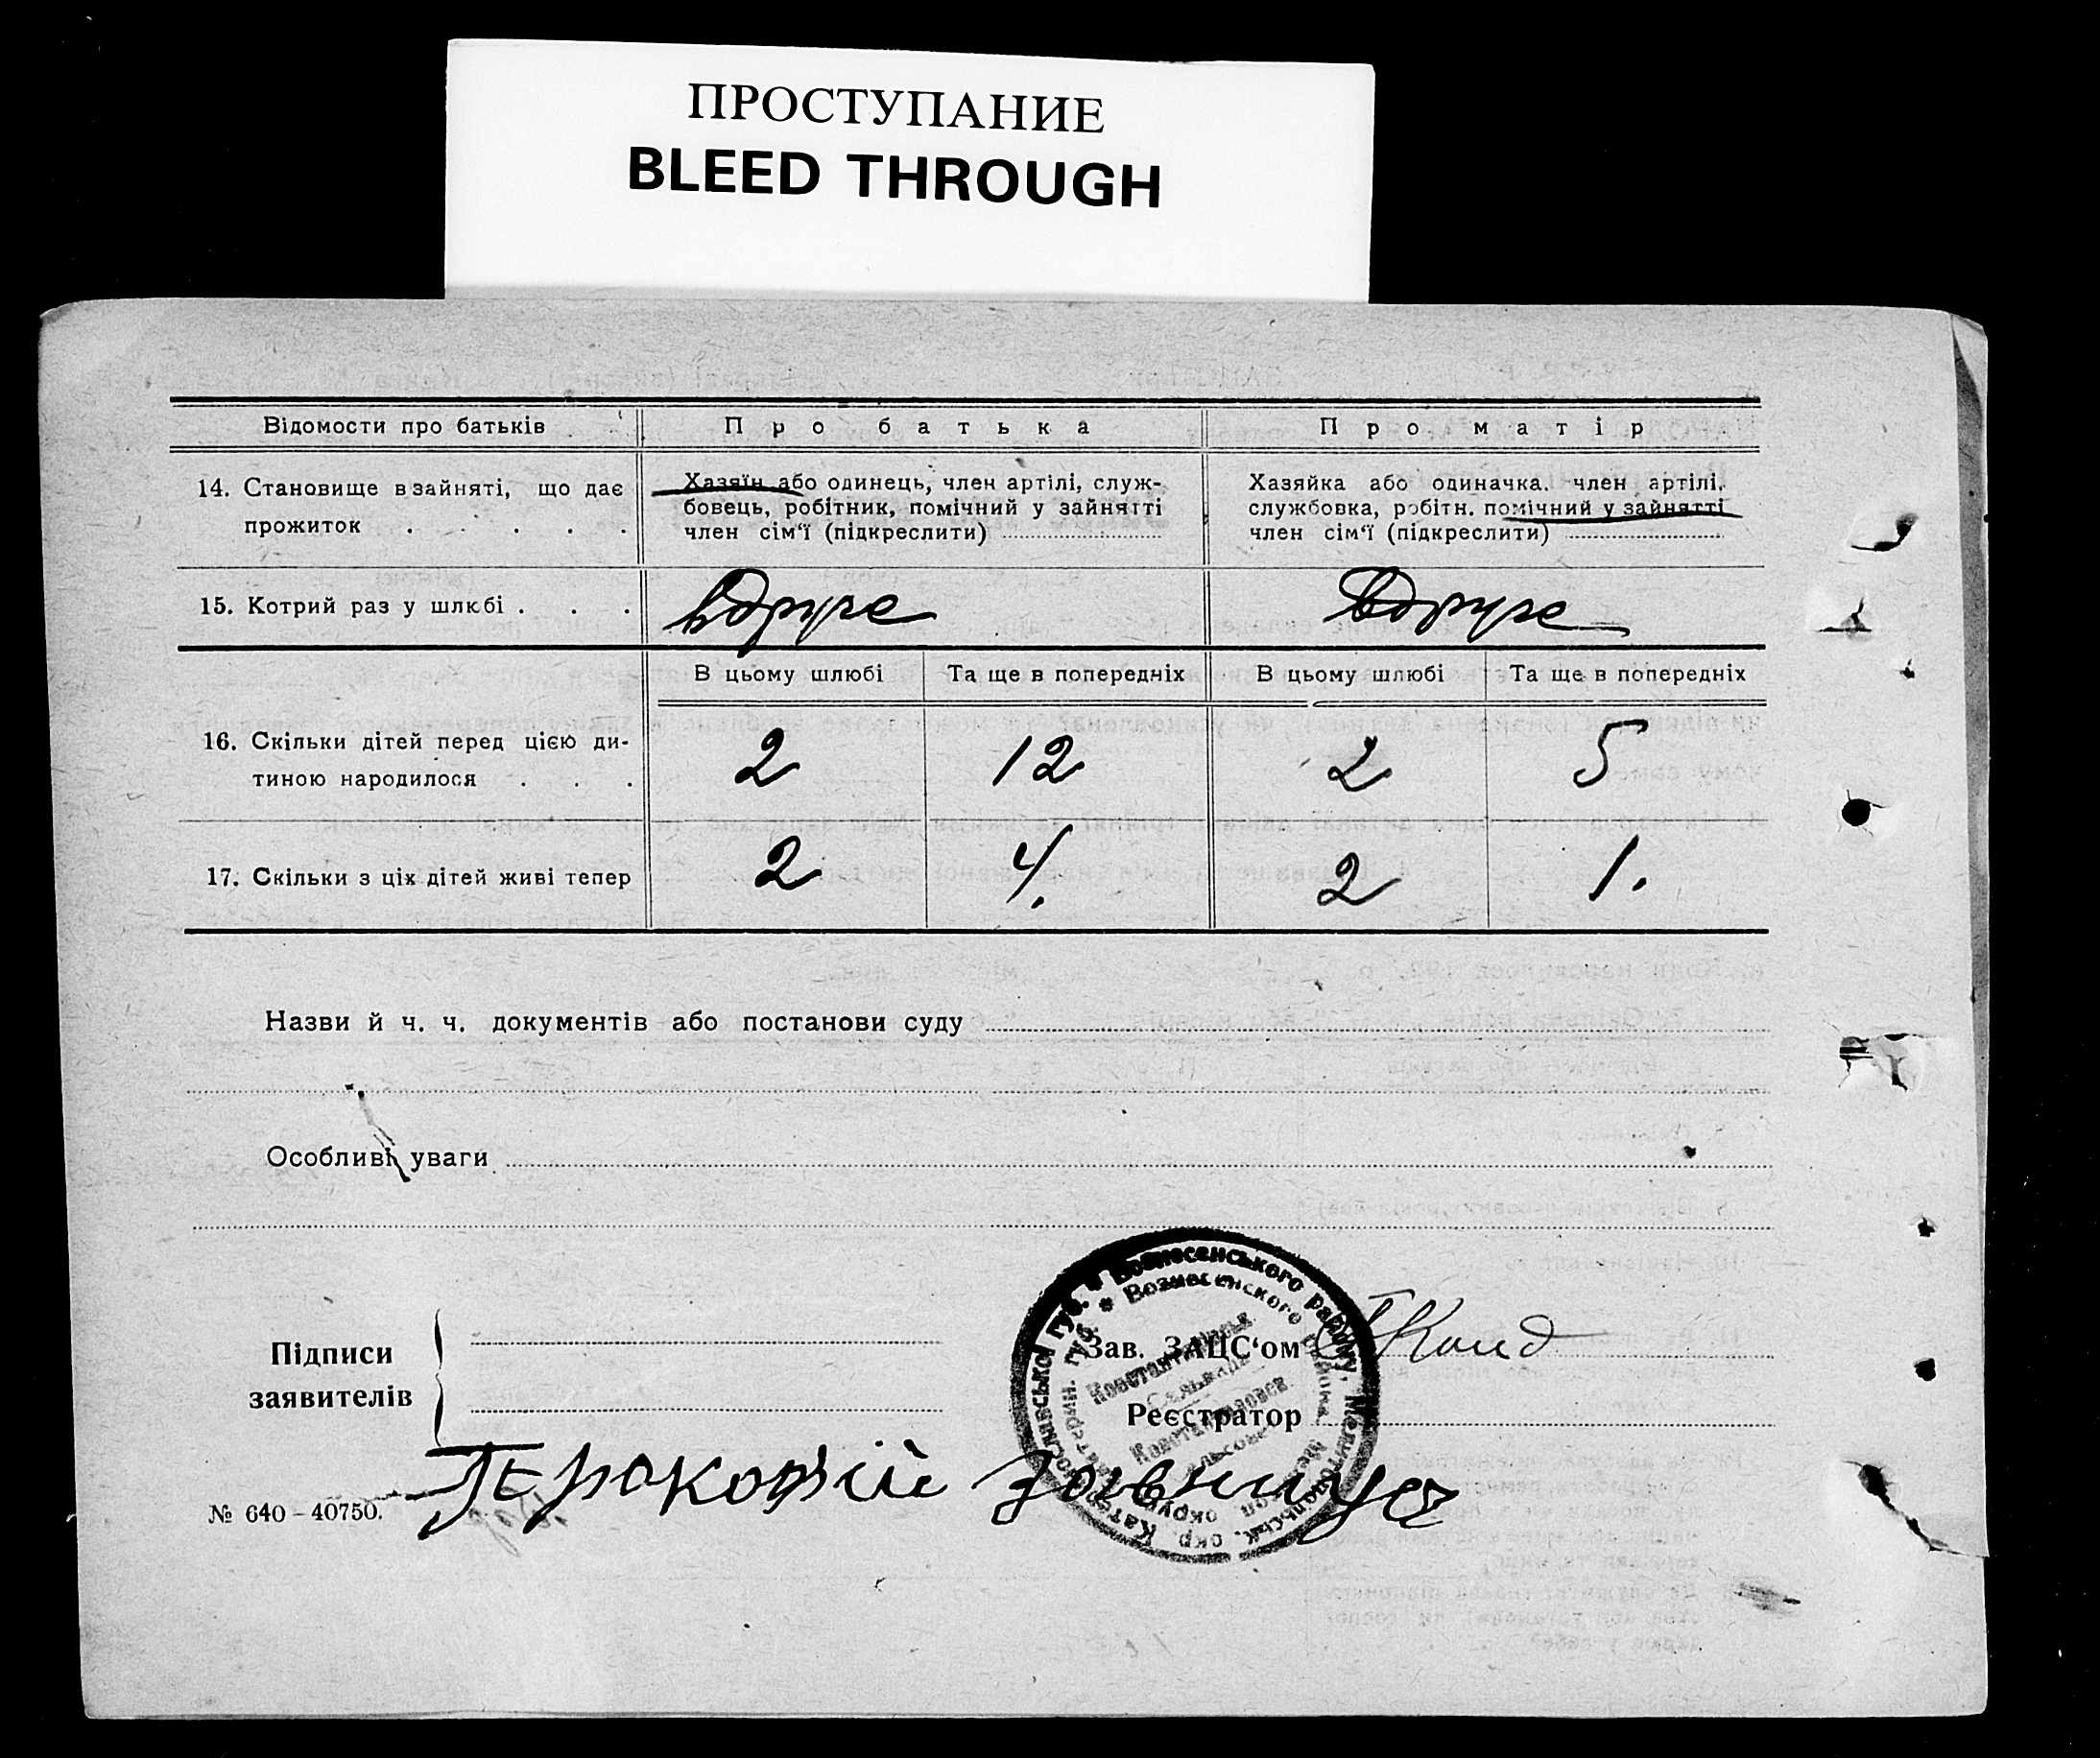 ПРОСТУПАНИЕ
BLEED THROUGH
Відомости про батьків Про батька Про матір
14. Становище в зайняті, що дає прожиток . . . . .
Хазяїн або одинець, член артілі, служ-
бовець, робітник, помічний у зайнятті
член сім‘ї (підкреслити)
Хазяйка або одиначка. член артілі,
службовка, робітн. помічний у зайнятті
член сім‘ї (підкреслити)
15. Котрий раз у шлюбі . . . вдруге вдруге
В цьому шлюбі Та ще в попередніх В цьому шлюбі Та ще в попередніх
16. Скільки дітей перед цією ди-
тиною народилося . . . 2 12 2 5
17. Скільки з ціх дітей живі тепер 2 4. 2 1.
Назви й ч. ч. документів або постанови суду
Особливі уваги
Підписи
заявителів
Зав. ЗАЦС‘ом
Реєстратор
Прокофій
№ 640 – 40750.
Вознесенського району, Мелитопольськ. окр. Катеринославської губ.
Вознесенского района